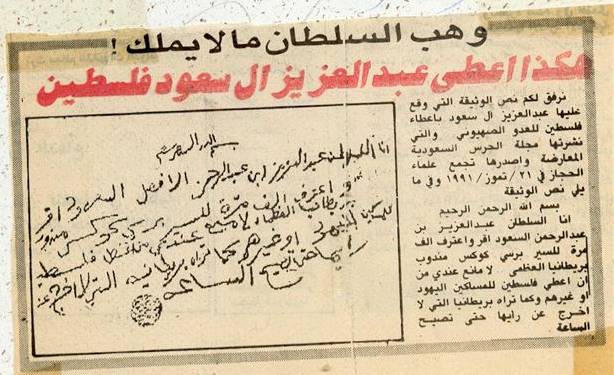 وهب السلطان مالايملك !
هكذا اعطى عبدالعزيز ال سعود فلسطين
نرفق لكم نص الوثيقة التي وقع
عليها عبدالعزيز ال سعود باعطاء
فلسطين للعدو الصهيوني والتي
نشرتها مجلة الحرس السعودية
المعارضة واصدرها تجمع علماء
الحجاز في ٢١/تموز/١٩٩١ وفي ما
يلي نص الوثيقة
بسم الله الرحمن الرحيم
انا السلطان عبدالعزيز بن
عبدالرحمن السعود اقر واعترف الف
مرة للسير برسي كوكس مندوب
بريطانيا العظمى لا مانع عندي من
ان اعطي فلسطين للمساكين اليهود
او غيرهم وكما تراه بريطانيا التي لا
اخرج عن رايها حتى تصيح
الساعة
انا السلطان عبدالعزيز ابن عبدالرحمن السعود اقر
واعترف الف مرة للسير برسي كوكس مندوب
بريطانيا العظمى لا مانع عندي
او غيرهم كما تراه بريطانيا التي لا اخرج عن
رايها حتى تصيح الساعة